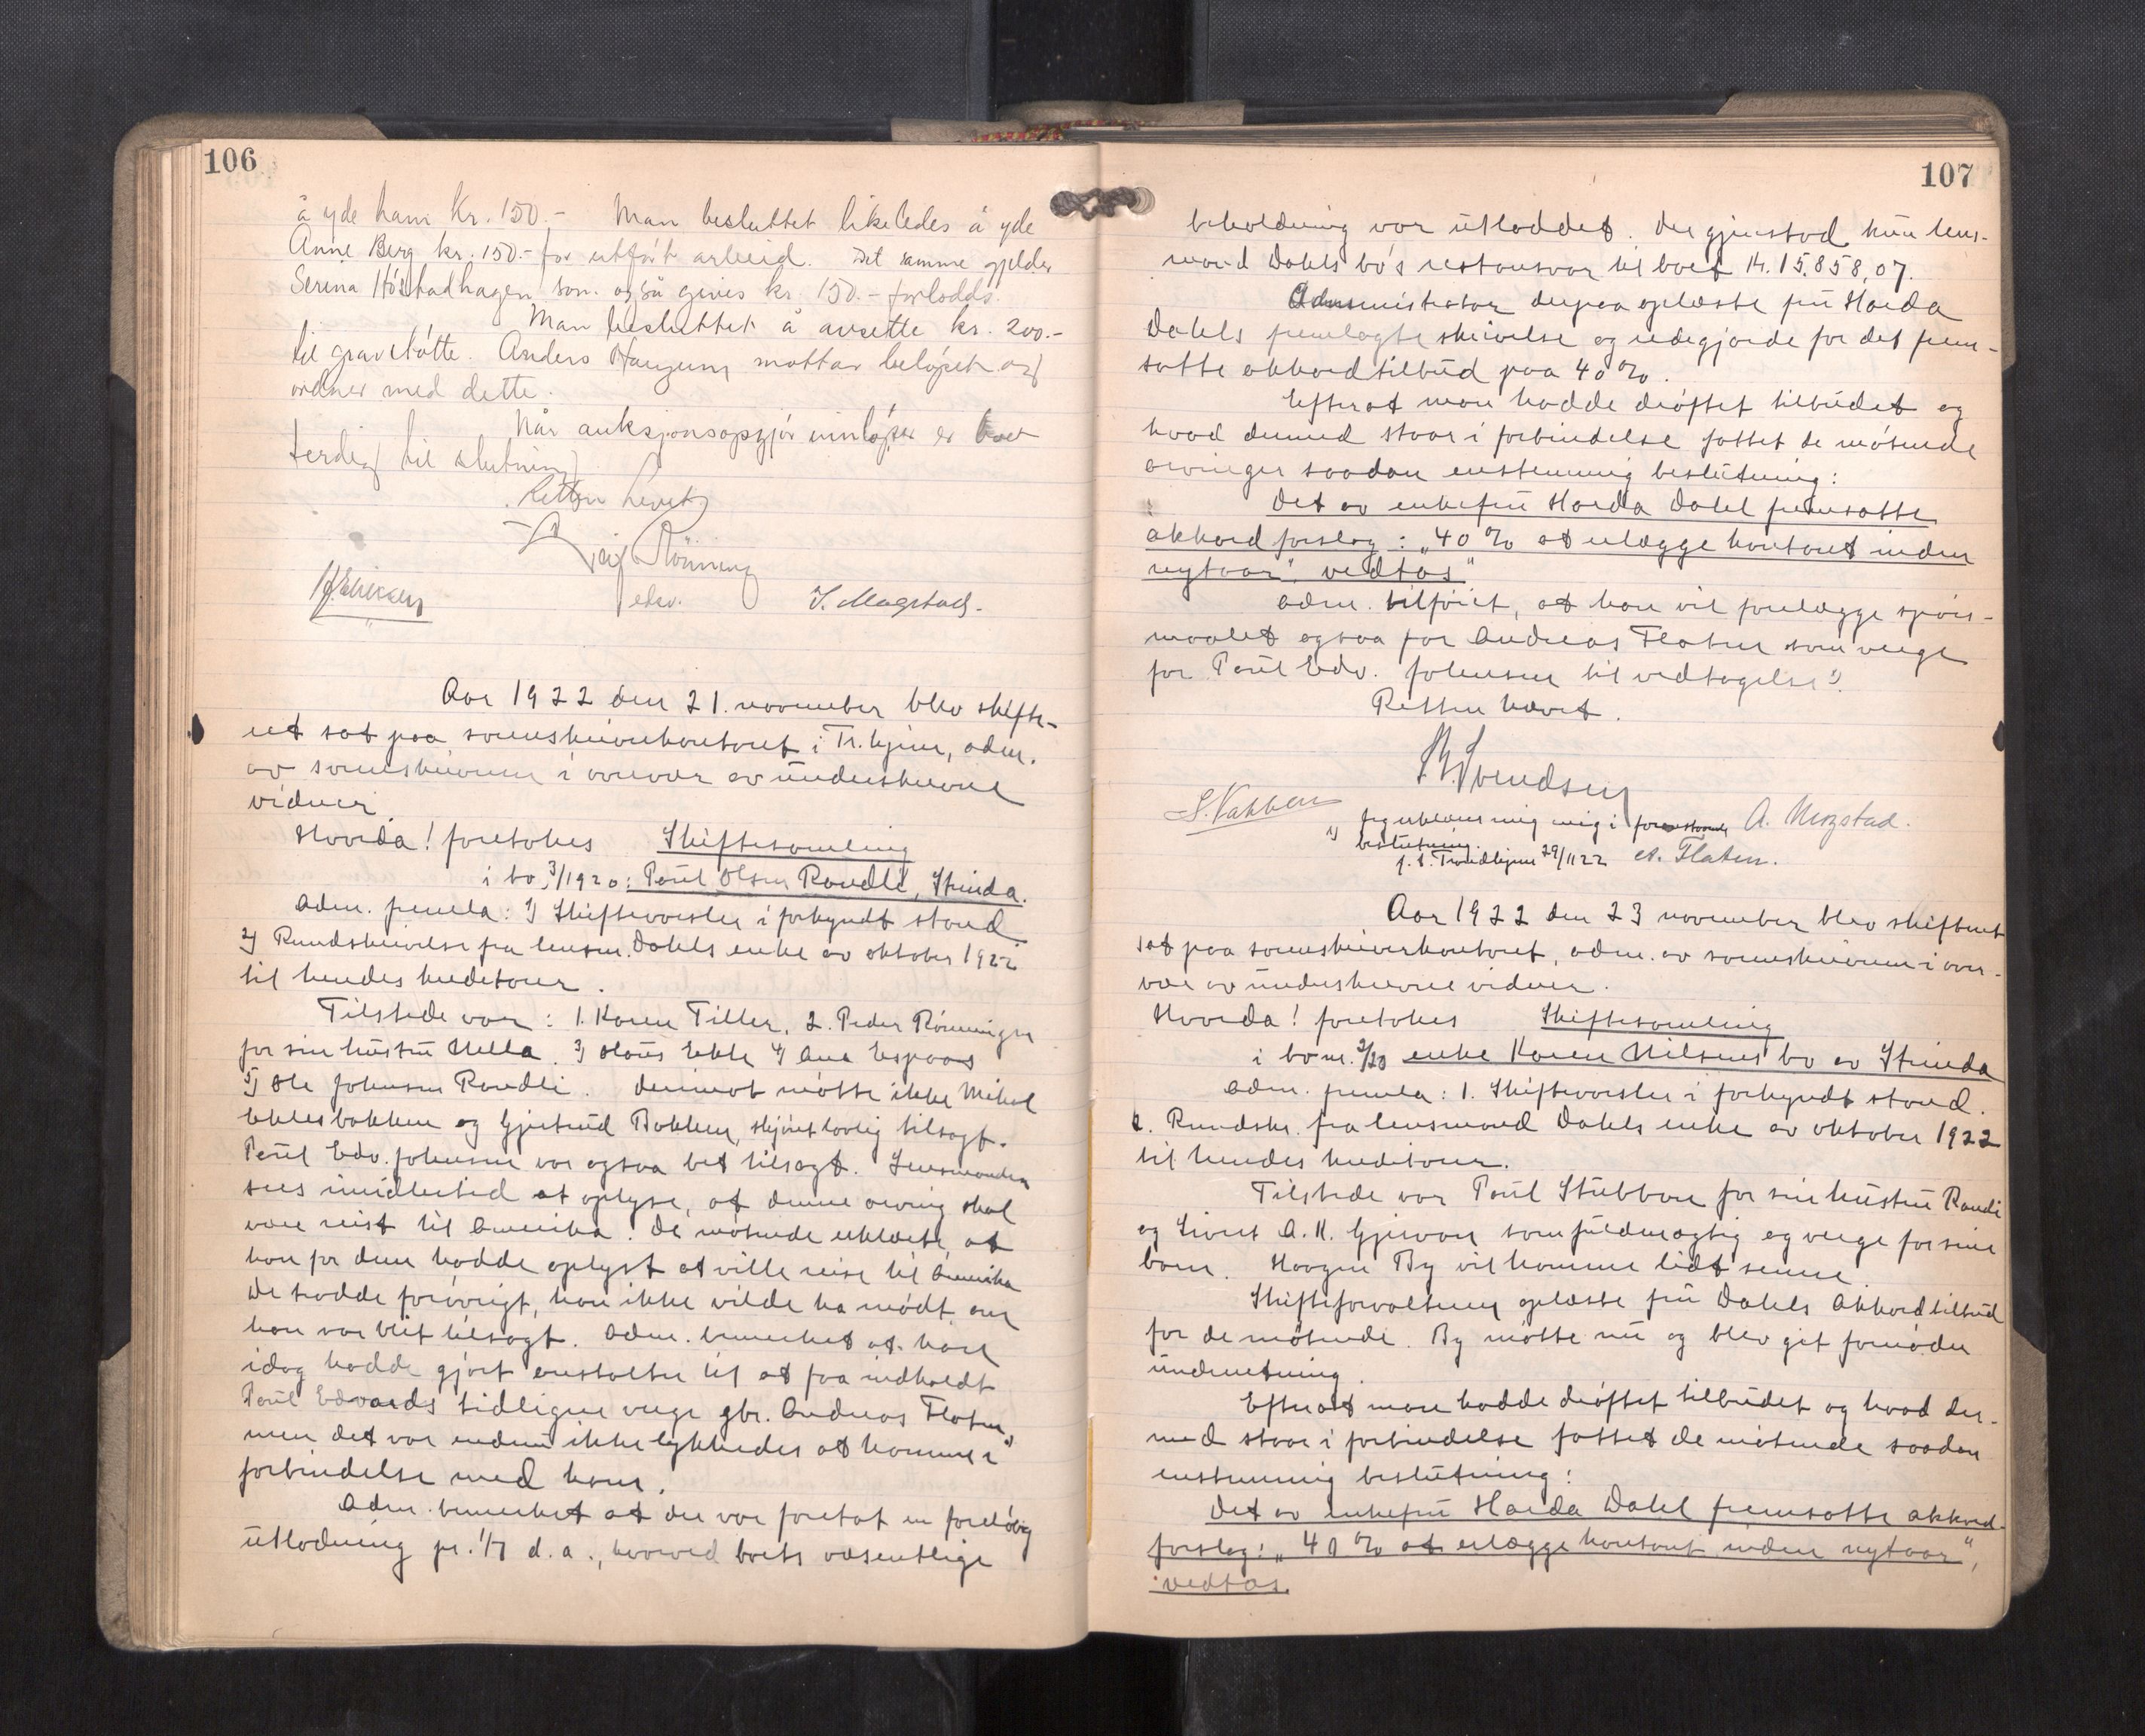 106
å yde ham kr. 150.- Man besluttet likeledes å yde
Anne Berg kr. 150.- for utført arbeid. Det samme gjelder
Serina Höstadhagen som også gives kr. 150.- forlodds.
Man besluttet å avsette kr. 200.-
til gravstötte. Anders Haugum mottar beløpet og
ordner med dette.
Når auksjonsopgjör innløper er boet
ferdig til slutning.
Retten hevet
Leif Rönning
edsv.
S. Mogstad.
Aar 1922 den 21. november blev skifte-
ret sat paa sorenskriverkontoret i Tr.hjem, adm.
av sorenskriveren i overvær av underskrevne
vidner.
Hvorda! foretokes Skiftesamling
i bo 3/1920: Paul Olsen Randli, Strinda.
Adm. fremla: 1) Skiftevarsler i forkyndt stand
2) Rundskrivelse fra lensm. Dahls enke av oktober 1922
til hendes kreditorer.
Tilstede var: 1. Karen Tiller, 2. Peder Rönningen
for sin hustru Mella. 3) Olaus Ekle 4) Ane Espaas
5) Ole Johnsen Randli. Derimot møtte ikke Mikal
Eklesbakken og Gjertrud Bakken, skjönt lovlig tilsagt.
Paul Edv. Johnsen var ogsaa bet tilsagt. Lensmanden
sees imidlertid at oplyse, at denne arving skal
være reist til Amerika. De møtende erklærte, at
han for dem hadde oplyst at ville reise til Amerika
De trodde forövrigt, han ikke vilde ha mødt om
han var blit tilsagt. Adm. bemerket at han
idag hadde gjort anstalter til at faa indkaldt
Paul Edvards tidligere verge gbr. Andreas Flaten,
men det var endnu ikke lykkedes at komme i
forbindelse med ham.
Adm. bemerket at der var foretat en foreløbig
utlodning pr. 1/7 d.a., hvorved boets væsentlige
107
beholdning var utloddet. Der gjenstod kun lens-
mand Dahls bo's restansvar til boet kr. 15.858,07.
Administrator derpaa oplæste fru Harda
Dahls fremlagte skrivelse og redegjorde for det frem-
satte akkordtilbud paa 40 %.
Efterat man hadde dröftet tilbudet og
hvad dermed staar i forbindelse fattet de møtende
arvinger saadan enstemmig beslutning:
Det av enkefru Harda Dahl fremsatte
akkordforslag: "40 % at erlægge kontant inden
nytaar", vedtas"
Adm. tilföiet, at han vil forelægge spörs-
maalet ogsaa for Andreas Flaten som verge
for Paul Edv. Johnsen til vedtagelse 1).
Retten hævet.
Svendsen
A. Mogstad.
1) Jeg erklærer mig enig i foranstaaende
beslutning.
p.t. Trondhjem 29/11 22 A. Flaten.
Aar 1922 den 23 november blev skifteret
sat paa sorenskriverkontoret, adm. av sorenskriveren i over-
vær av underskrevne vidner.
Hvorda! foretokes Skiftesamling
i bo nr. 2/20 enke Karen Nilsens bo av Strinda
Adm. fremla: 1. Skiftevarsler i forkyndt stand.
2. Rundskr. fra lensmand Dahls enke av oktober 1922
til hendes kreditorer.
Tilstede var Paul Stubban for sin hustru Randi
og Sivert A. K. Gjervan som fuldmægtig og verge for sine
barn. Haagen By vil komme lidt senere.
Skifteforvalteren oplæste fru Dahls Akkordtilbud
for de møtende. By møtte nu og blev git fornøden
underretning.
Efterat man hadde dröftet tilbudet og hvad der-
med staar i forbindelse fattet de møtende saadan
enstemmig beslutning:
Det av enkefru Harda Dahl fremsatte akkord-
forslag: "40 % at erlægge kontant inden nytaar",
vedtas.